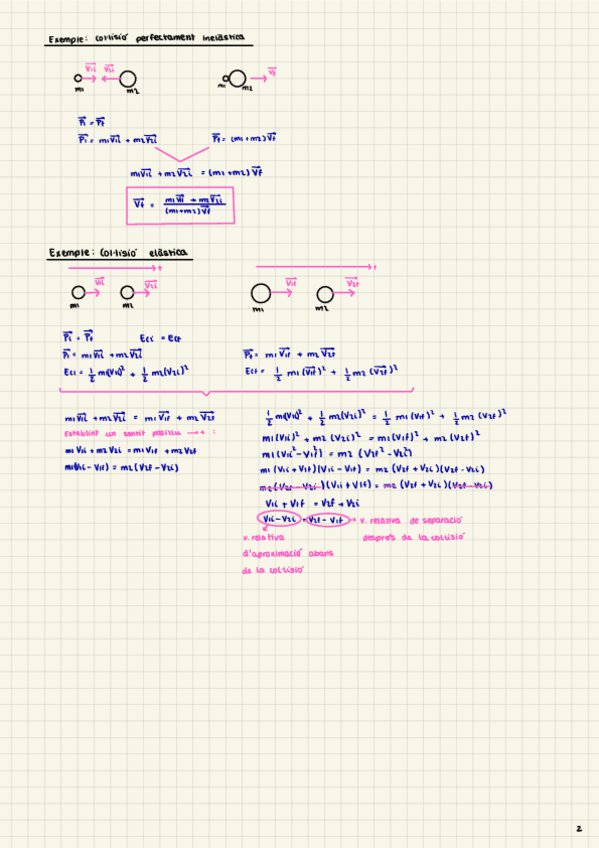 Exemple: Col·lisió perfectament inelàstica
V⃗1i V⃗2i V⃗f
m1 m2 m1 m2
P⃗i = P⃗f
P⃗i = m1V⃗1i + m2V⃗2i P⃗f = (m1+m2)V⃗f
m1V⃗1i + m2V⃗2i = (m1+m2)V⃗f
V⃗f = m1V⃗1i + m2V⃗2i / (m1+m2)V⃗f
Exemple: Col·lisió elàstica
+ +
V⃗1i V⃗2i V⃗1f V⃗2f
m1 m2 m1 m2
P⃗i = P⃗f Eci = Ecf
P⃗i = m1V⃗1i + m2V⃗2i P⃗f = m1V⃗1f + m2V⃗2f
Eci = 1/2 m1(V1i)² + 1/2 m2(V2i)² Ecf = 1/2 m1(V⃗1f)² + 1/2 m2(V⃗2f)²
m1V⃗1i + m2V⃗2i = m1V⃗1f + m2V⃗2f
Establint un sentit positiu → + :
m1V1i + m2V2i = m1V1f + m2V2f
m1(V1i - V1f) = m2(V2f - V2i)
1/2 m1(V1i)² + 1/2 m2(V2i)² = 1/2 m1(V1f)² + 1/2 m2(V2f)²
m1(V1i)² + m2(V2i)² = m1(V1f)² + m2(V2f)²
m1(V1i² - V1f²) = m2(V2f² - V2i²)
m1(V1i + V1f)(V1i - V1f) = m2(V2f + V2i)(V2f - V2i)
m2(V2f - V2i)(V1i + V1f) = m2(V2f + V2i)(V2f - V2i)
V1i + V1f = V2f + V2i
V1i - V2i = V2f - V1f → v. relativa de separació
després de la col·lisió
v. relativa
d'aproximació abans
de la col·lisió
2